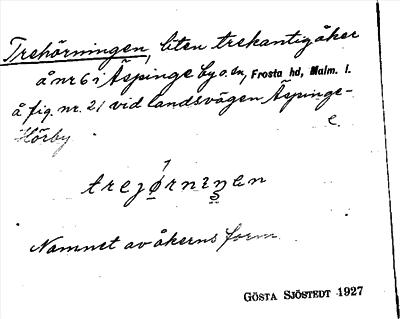 Trehörningen, liten trekantig åker
å nr 6 i Äspinge by o. sn, Frosta hd, Malm. l.
å fig. nr. 21 vid landsvägen Äspinge-
Hörby
e.
Namnet av åkerns form
GÖSTA SJÖSTEDT 1927